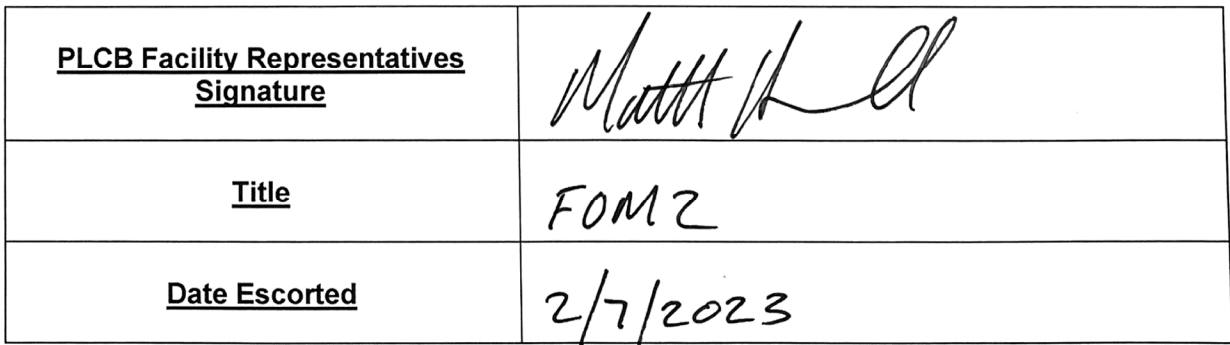 PLCB Facility Representatives
Signature
Matt
Title
FOM2
Date Escorted
2/7/2023